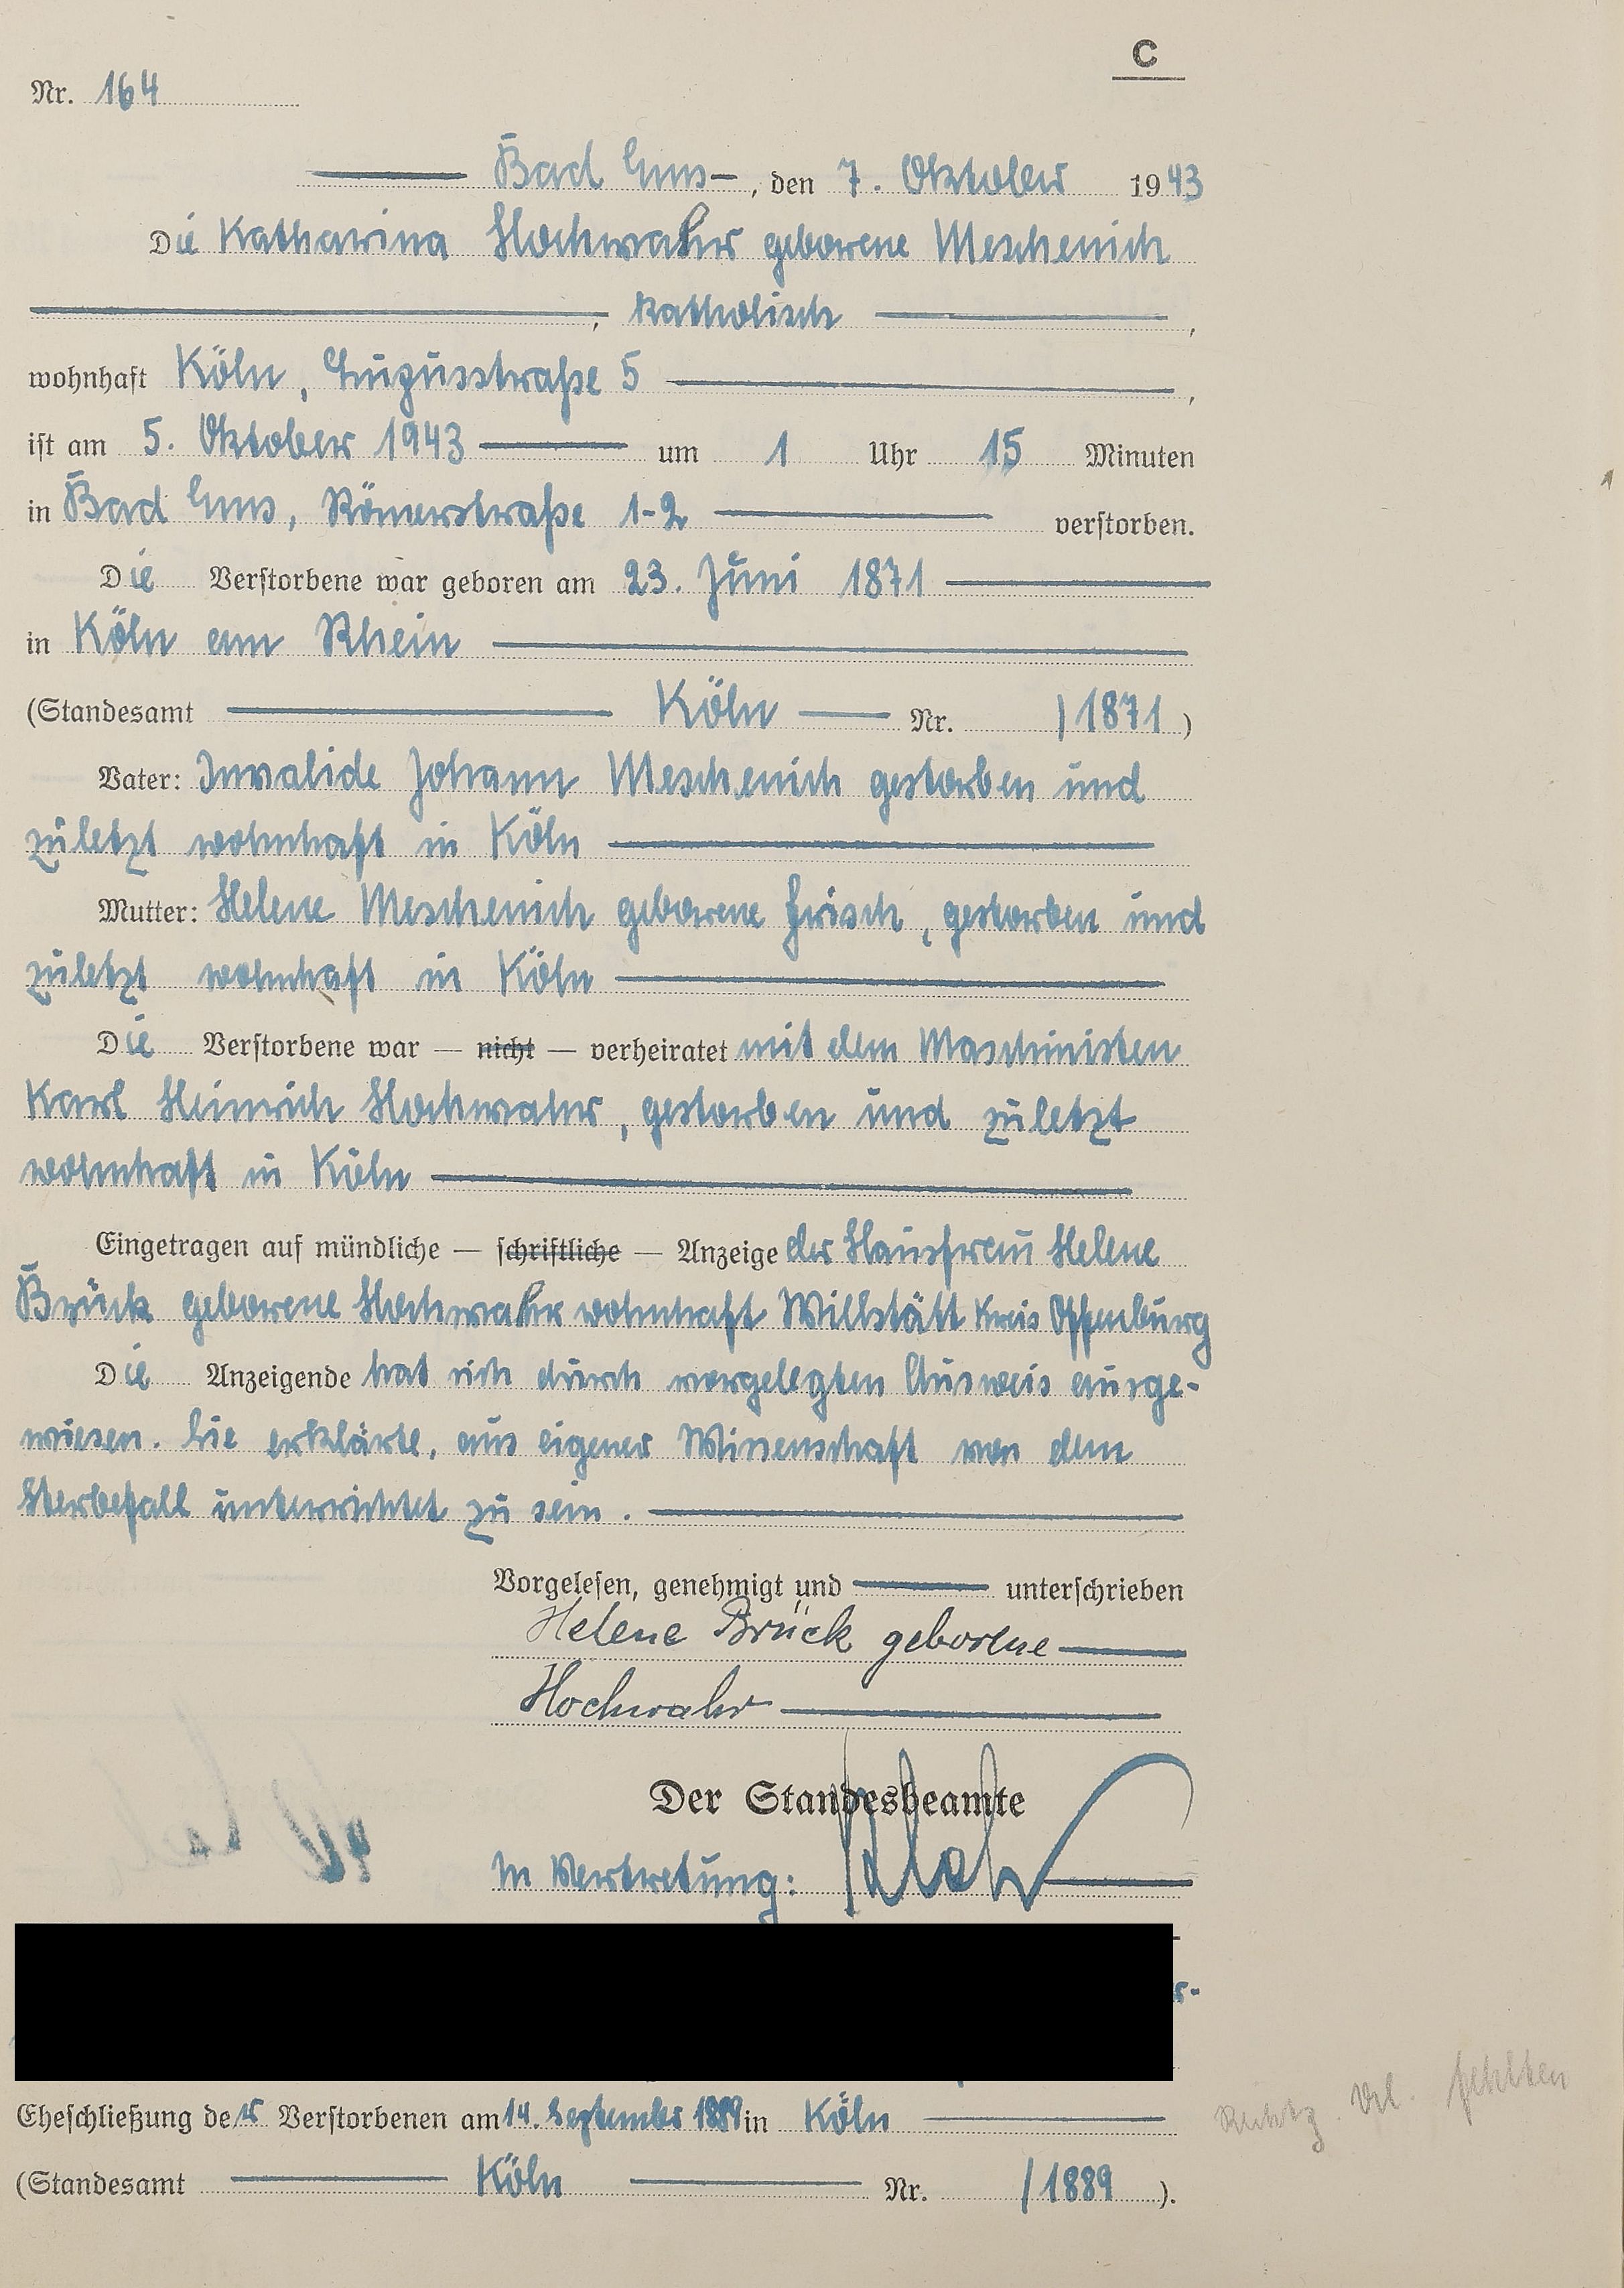 C
Nr. 164
Bad Ems, den 7. Oktober 1943
Die Katharina Hochwahr geborene Meschenich
, katholisch ,
wohnhaft Köln, 5 ,
ist am 5. Oktober 1943 um 1 Uhr 15 Minuten
in Bad Ems, Römerstraße 1-2 verstorben.
Die Verstorbene war geboren am 23. Juni 1871
in Köln am Rhein
(Standesamt Köln Nr. /1871)
Vater: Invalide Johann Meschenich gestorben und
zuletzt wohnhaft in Köln
Mutter: Helene Meschenich geborene Frisch, gestorben und
zuletzt wohnhaft in Köln
Die Verstorbene war — nicht — verheiratet mit dem Maschinisten
Karl Heinrich Hochwahr, gestorben und zuletzt
wohnhaft in Köln
Eingetragen auf mündliche — schriftliche — Anzeige der Hausfrau Helene
Brück geborene Hochwahr wohnhaft Willstätt Kreis Offenburg
Die Anzeigende hat sich durch vorgelegten Ausweis ausge-
wiesen. Sie erklärte, aus eigener Wissenschaft von dem
Sterbefall unterrichtet zu sein.
Vorgelesen, genehmigt und unterschrieben
Helene Brück geborene
Hochwahr
Der Standesbeamte
In Vertretung:
Eheschließung der Verstorbenen am 14. September 1889 in Köln
(Standesamt Köln Nr. /1889).
fehlten